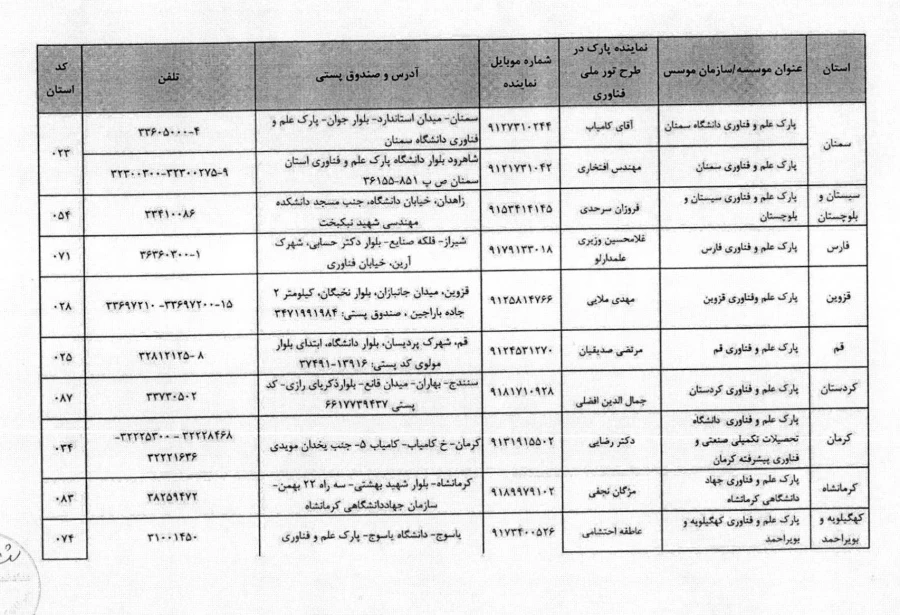 استان عنوان موسسه/سازمان موسس نماینده پارک در طرح تور ملی فناوری شماره موبایل نماینده آدرس و صندوق پستی تلفن کد استان
سمنان پارک علم و فناوری دانشگاه سمنان آقای کامیاب ۹۱۲۷۳۱۰۲۴۴ سمنان- میدان استاندارد- بلوار جوان- پارک علم و فناوری دانشگاه سمنان ۳۳۶۰۵۰۰۰-۴ ۰۲۳
پارک علم و فناوری سمنان مهندس افتخاری ۹۱۲۱۷۳۱۰۴۲ شاهرود بلوار دانشگاه پارک علم و فناوری استان سمنان ص پ ۸۵۱-۳۶۱۵۵ ۳۲۳۰۰۳۰۰-۳۲۳۰۰۲۷۵-۹
سیستان و بلوچستان پارک علم و فناوری سیستان و بلوچستان فروزان سرحدی ۹۱۵۳۴۱۴۱۴۵ زاهدان، خیابان دانشگاه، جنب مسجد دانشکده مهندسی شهید نیکبخت ۳۳۴۱۰۰۸۶ ۰۵۴
فارس پارک علم و فناوری فارس غلامحسین وزیری علمدارلو ۹۱۷۹۱۳۳۰۱۸ شیراز- فلکه صنایع- بلوار دکتر حسابی، شهرک آرین، خیابان فناوری ۳۶۳۶۰۳۰۰-۱ ۰۷۱
قزوین پارک علم وفناوری قزوین مهدی ملایی ۹۱۲۵۸۱۴۷۶۶ قزوین، میدان جانبازان، بلوار نخبگان، کیلومتر ۲ جاده باراجین ، صندوق پستی: ۳۴۷۱۹۹۱۹۸۴ ۳۳۶۹۷۲۱۰ -۳۳۶۹۷۲۰۰-۱۵ ۰۲۸
قم پارک علم و فناوری قم مرتضی صدیقیان ۹۱۲۴۵۳۱۲۷۰ قم، شهرک پردیسان، بلوار دانشگاه، ابتدای بلوار مولوی کد پستی: ۱۳۹۱۶-۳۷۴۹۱ ۳۲۸۱۲۱۲۵- ۸ ۰۲۵
کردستان پارک علم و فناوری کردستان جمال الدین افضلی ۹۱۸۱۷۱۰۹۲۸ سنندج- بهاران- میدان قانع- بلوارذکریای رازی- کد پستی ۶۶۱۷۷۳۹۴۳۷ ۳۳۷۳۰۵۰۲ ۰۸۷
کرمان پارک علم و فناوری دانشگاه تحصیلات تکمیلی صنعتی و فناوری پیشرفته کرمان دکتر رضایی ۹۱۳۱۹۱۵۵۰۲ کرمان- خ کامیاب- کامیاب ۵- جنب یخدان مویدی ۳۲۲۲۸۴۶۸ - ۳۲۲۲۵۳۰۰- ۳۲۲۲۱۶۳۶ ۰۳۴
کرمانشاه پارک علم و فناوری جهاد دانشگاهی کرمانشاه مژگان نجفی ۹۱۸۹۹۷۹۱۰۲ کرمانشاه- بلوار شهید بهشتی- سه راه ۲۲ بهمن- سازمان جهاددانشگاهی کرمانشاه ۳۸۲۵۹۴۷۲ ۰۸۳
کهگیلویه و بویراحمد پارک علم و فناوری کهگیلویه و بویراحمد عاطفه احتشامی ۹۱۷۳۴۰۰۵۲۶ یاسوج- دانشگاه یاسوج- پارک علم و فناوری ۳۱۰۰۱۴۵۰ ۰۷۴